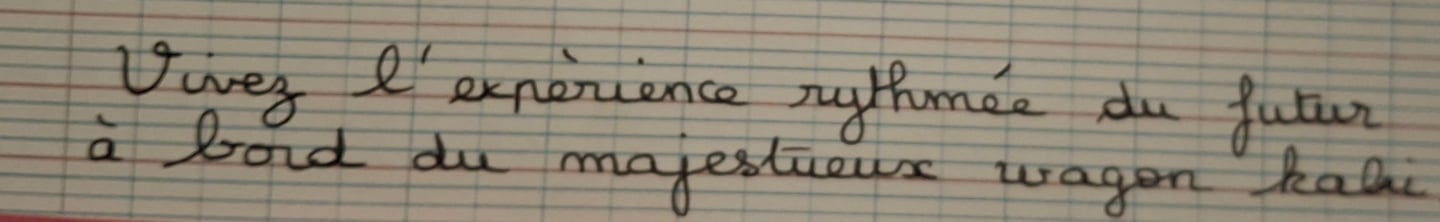 Vivez l'expèrience rythmée du futur
à bord du majestueux wagon kaki